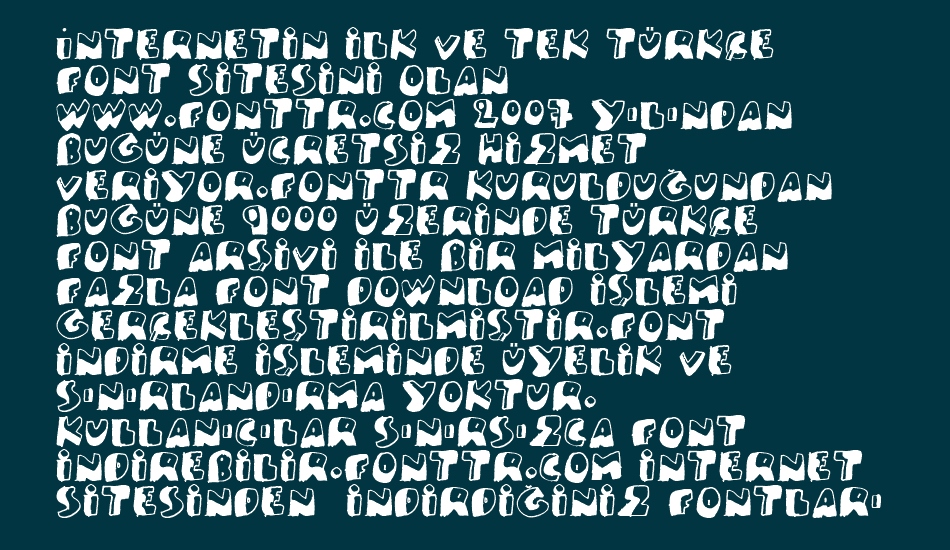 İNTERNETİN İLK VE TEK TÜRKÇE
FONT SİTESİNİ OLAN
WWW.FONTTR.COM 2007 YILINDAN
BUGÜNE ÜCRETSİZ HİZMET
VERİYOR.FONTTR KURULDUĞUNDAN
BUGÜNE 9000 ÜZERİNDE TÜRKÇE
FONT ARŞİVİ İLE BİR MİLYARDAN
FAZLA FONT DOWNLOAD İŞLEMİ
GERÇEKLEŞTİRİLMİŞTİR.FONT
İNDİRME İŞLEMİNDE ÜYELİK VE
SINIRLANDIRMA YOKTUR.
KULLANICILAR SINIRSIZCA FONT
İNDİREBİLİR.FONTTR.COM İNTERNET
SİTESİNDEN İNDİRDİĞİNİZ FONTLARI